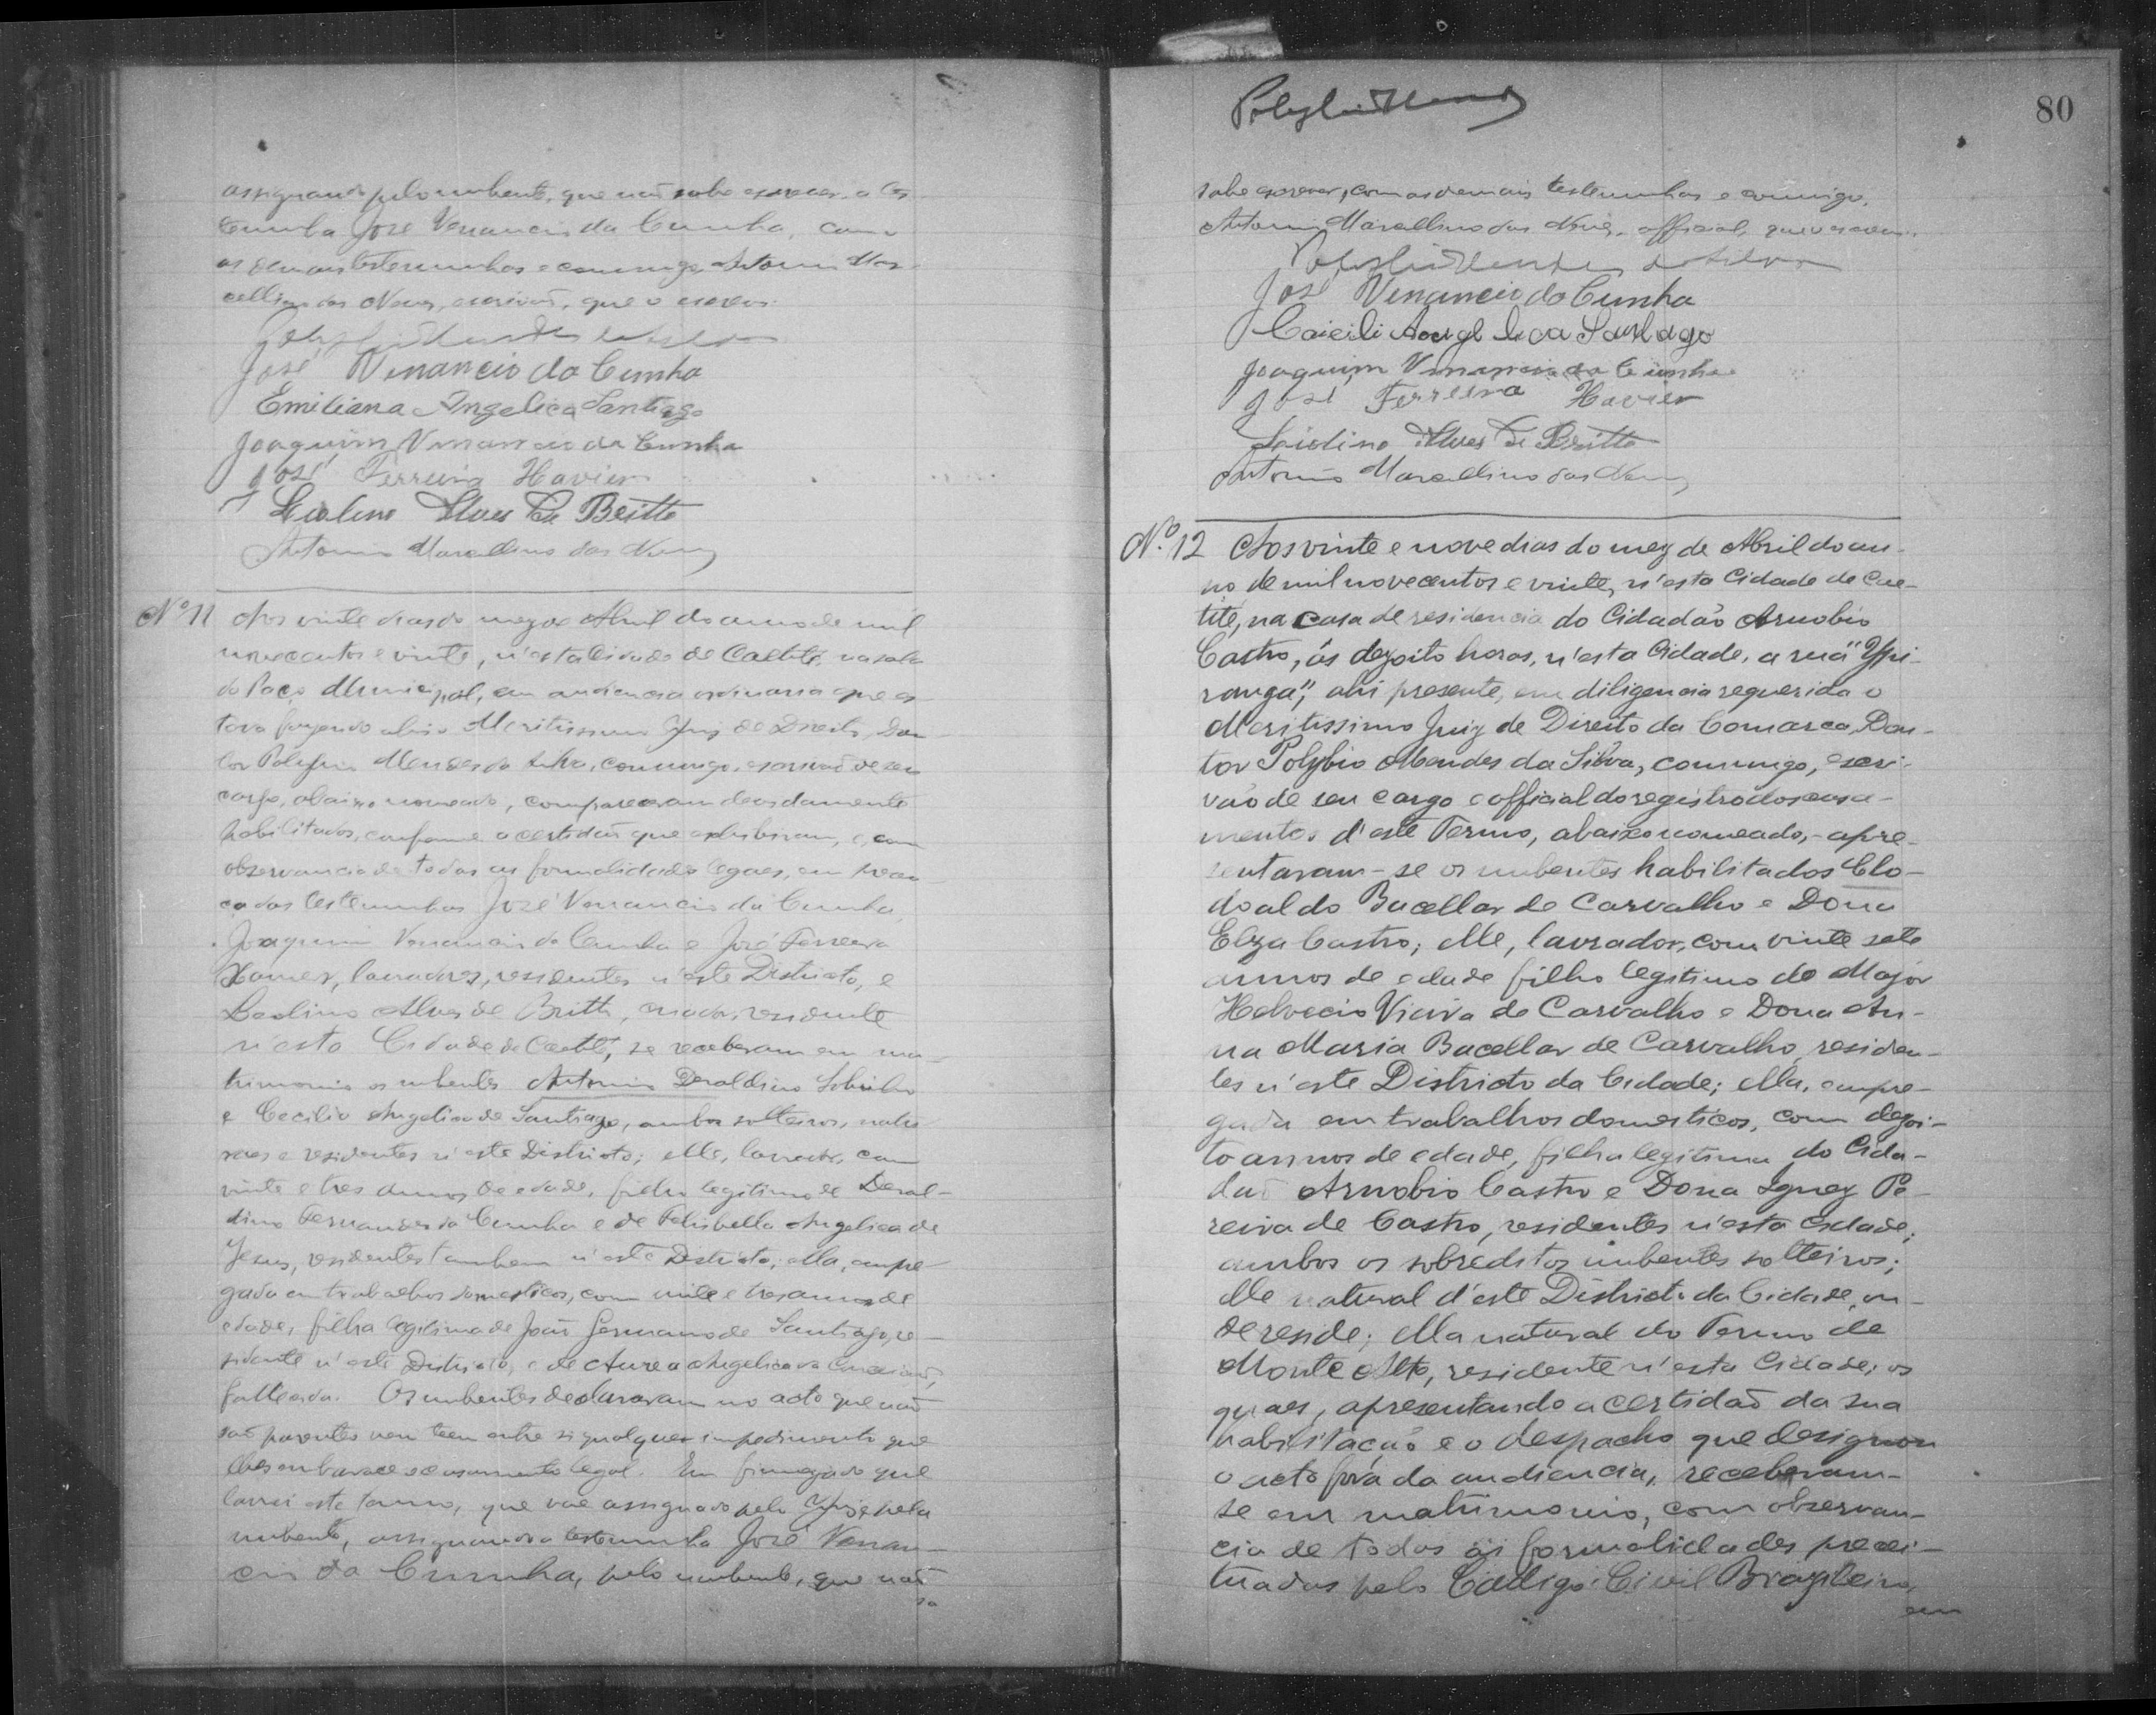 assignando pelo nubente, que não sabe escrever, a tes
temunha José Venancio da Cunha, com
as demais testemunhas e commigo, Antonio Mar
cellino das Neves, escrivão, que o escrevi.
José Venancio da Cunha
Emiliana Angelica Santiago
Joaquim Venancio da Cunha
José Ferreira Havier
Alves de Britto
Antonio Marcellino das Neves
Nº 11 Aos vinte dias do mez de Abril do anno de mil
novecentos e vinte, n'esta Cidade de Caeteté, na sala
do Paço Municipal, em audiencia ordinaria que es
tava fazendo ahi o Meritissimo Juiz de Direito, Dou
tor Polybio Mendes da Silva, commigo, escrivão de seu
cargo, abaixo nomeado, compareceram devidamente
habilitados, conforme a certidão que exhibiram, e, com
observancia de todas as formalidades legaes, em presen
ça das testemunhas José Venancio da Cunha,
Joaquim Venancio da Cunha e José Ferreira
Xavier, lavradores, residentes n'este Districto, e
Alves de Britto, residente
n'esta Cidade de Caeteté, se receberam em ma-
trimonio os nubentes Antonio Deraldino Sobrinho
e Cecilia Angelica de Santiago, ambos solteiros, natu
raes e residentes n'este Districto; elle, lavrador, com
vinte e tres annos de edade, filho legitimo de Deral-
dino Fernandes da Cunha e de Felisbella Angelica de
Jesus, residentes tambem n'este Districto; ella, empre-
gada em trabalhos domesticos, com vinte e tres annos de
edade, filha legitima de João Germano de Santiago, re-
sidente n'este Districto, e de Aurea Angelica da Conceição,
fallecida. Os nubentes declararam no acto que não
são parentes nem teem entre si qualquer impedimento que
lhes embarace o casamento legal. Em firmeza do que
lavrei este termo, que vae assignado pelo Juiz, pela
nubente, assignando a testemunha José Venan-
cio da Cunha, pelo nubente, que não
sa
80
sabe escrever, com as demais testemunhas e commigo,
Antonio Marcellino das Neves, official, que o escrevi.
Polybio Mendes da Silva
José Venancio da Cunha
Caicili Angelica Santiago
Joaquim Venancio da Cunha
José Ferreira Havier
Alves de Britto
Antonio Marcellino das Neves
Nº. 12 Aos vinte e nove dias do mez de Abril do an-
no de mil novecentos e vinte, n'esta Cidade de Cae-
tité, na casa de residencia do Cidadão Arnobio
Castro, ás dezoito horas, n'esta Cidade, a rua "Ypi-
ranga", ahi presente, em diligencia requerida o
Meritissimo Juiz de Direito da Comarca, Dou-
tor Polybio Mendes da Silva, commigo, escri-
vão de seu cargo e official do registro dos casa-
mentos d'este Termo, abaixo nomeado, - apre-
sentaram-se os nubentes habilitados Clo-
doaldo Bacellar de Carvalho e Dona
Elza Castro; elle, lavrador, com vinte sete
annos de edade filho legitimo do Major
Helvecio Vieira de Carvalho e Dona An-
na Maria Bacellar de Carvalho, residen-
tes n'este Districto da Cidade; ella, empre-
gada em trabalhos domesticos, com dezoi-
to annos de edade, filha legitima do Cida-
dão Arnobio Castro e Dona Ignez Pe-
reira de Castro, residentes n'esta Cidade;
ambos os sobreditos nubentes solteiros;
elle natural d'este Districto da Cidade, on-
de reside; ella natural do Termo de
Monte Alto, residente n'esta Cidade; os
quaes, apresentando a certidão da sua
habilitação e o despacho que designou
o acto fóra da audiencia, receberam-
se em matrimonio, com observan-
cia de todas as formalidades precei-
tuadas pelo Codigo Civil Brazileiro,
em